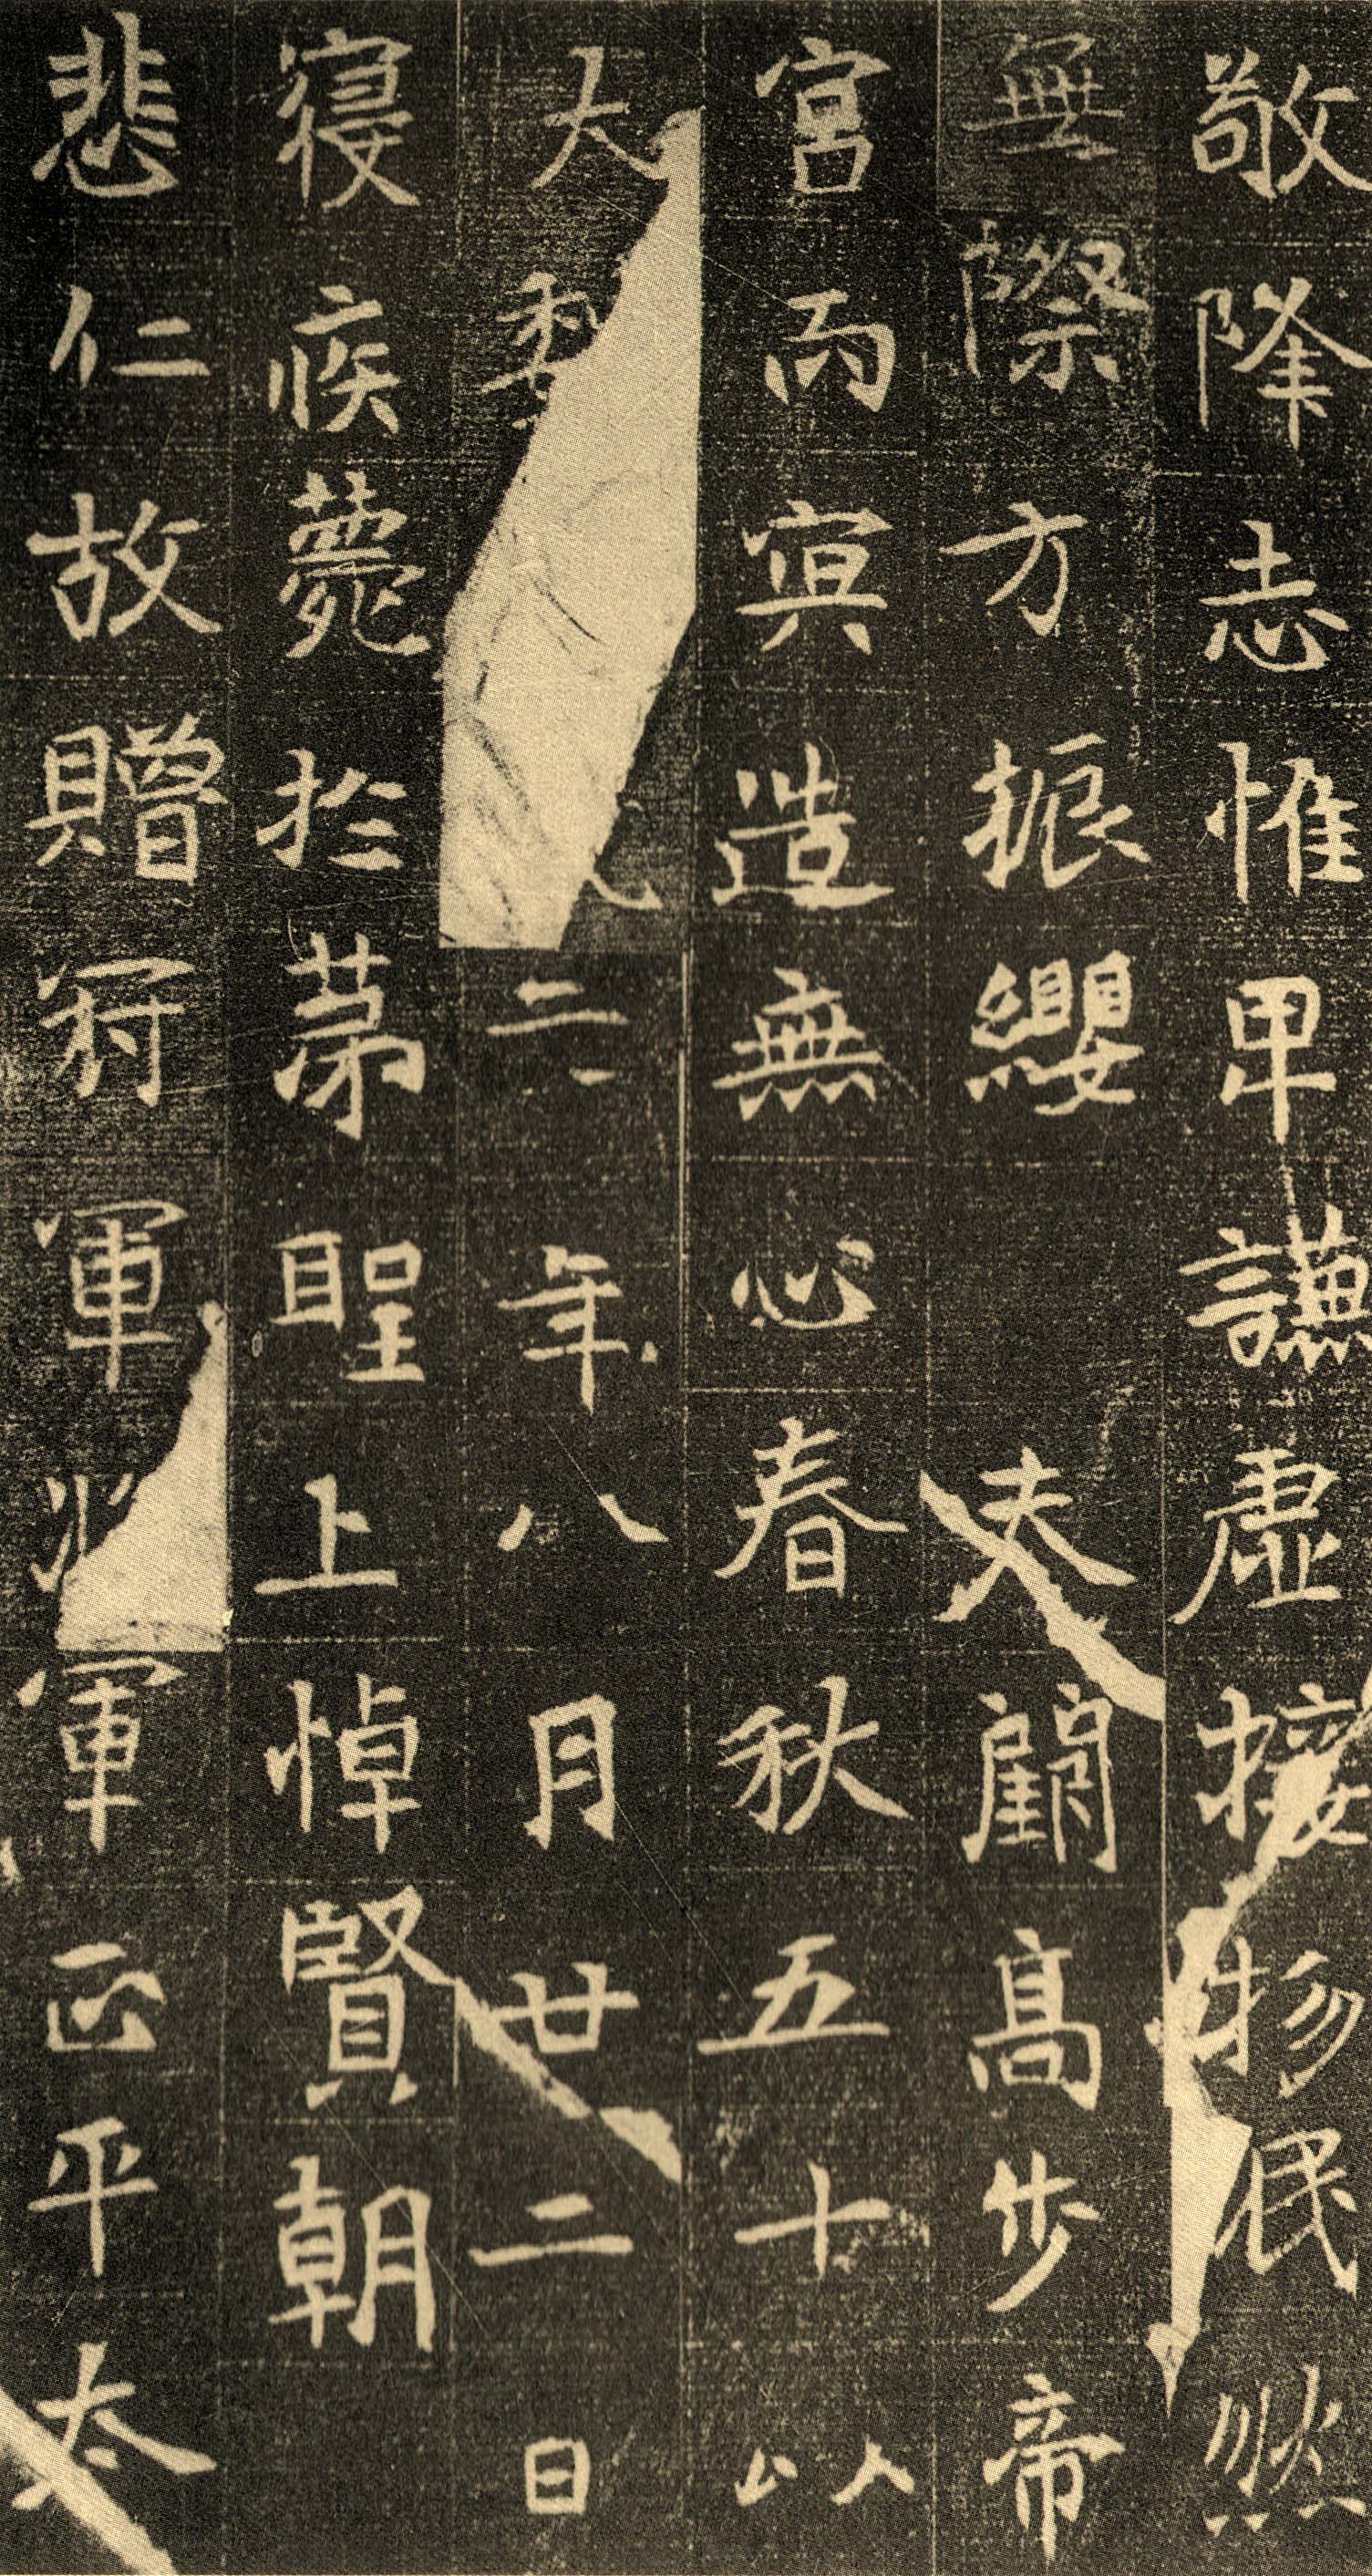 敬降志惟卑謙虛接物泯然
無際方振纓天闕高步帝
宮而冥造無心春秋五十以
大魏二年八月廿二日
寢疾薨於第聖上悼賢朝
悲仁故贈冠軍將軍正平太